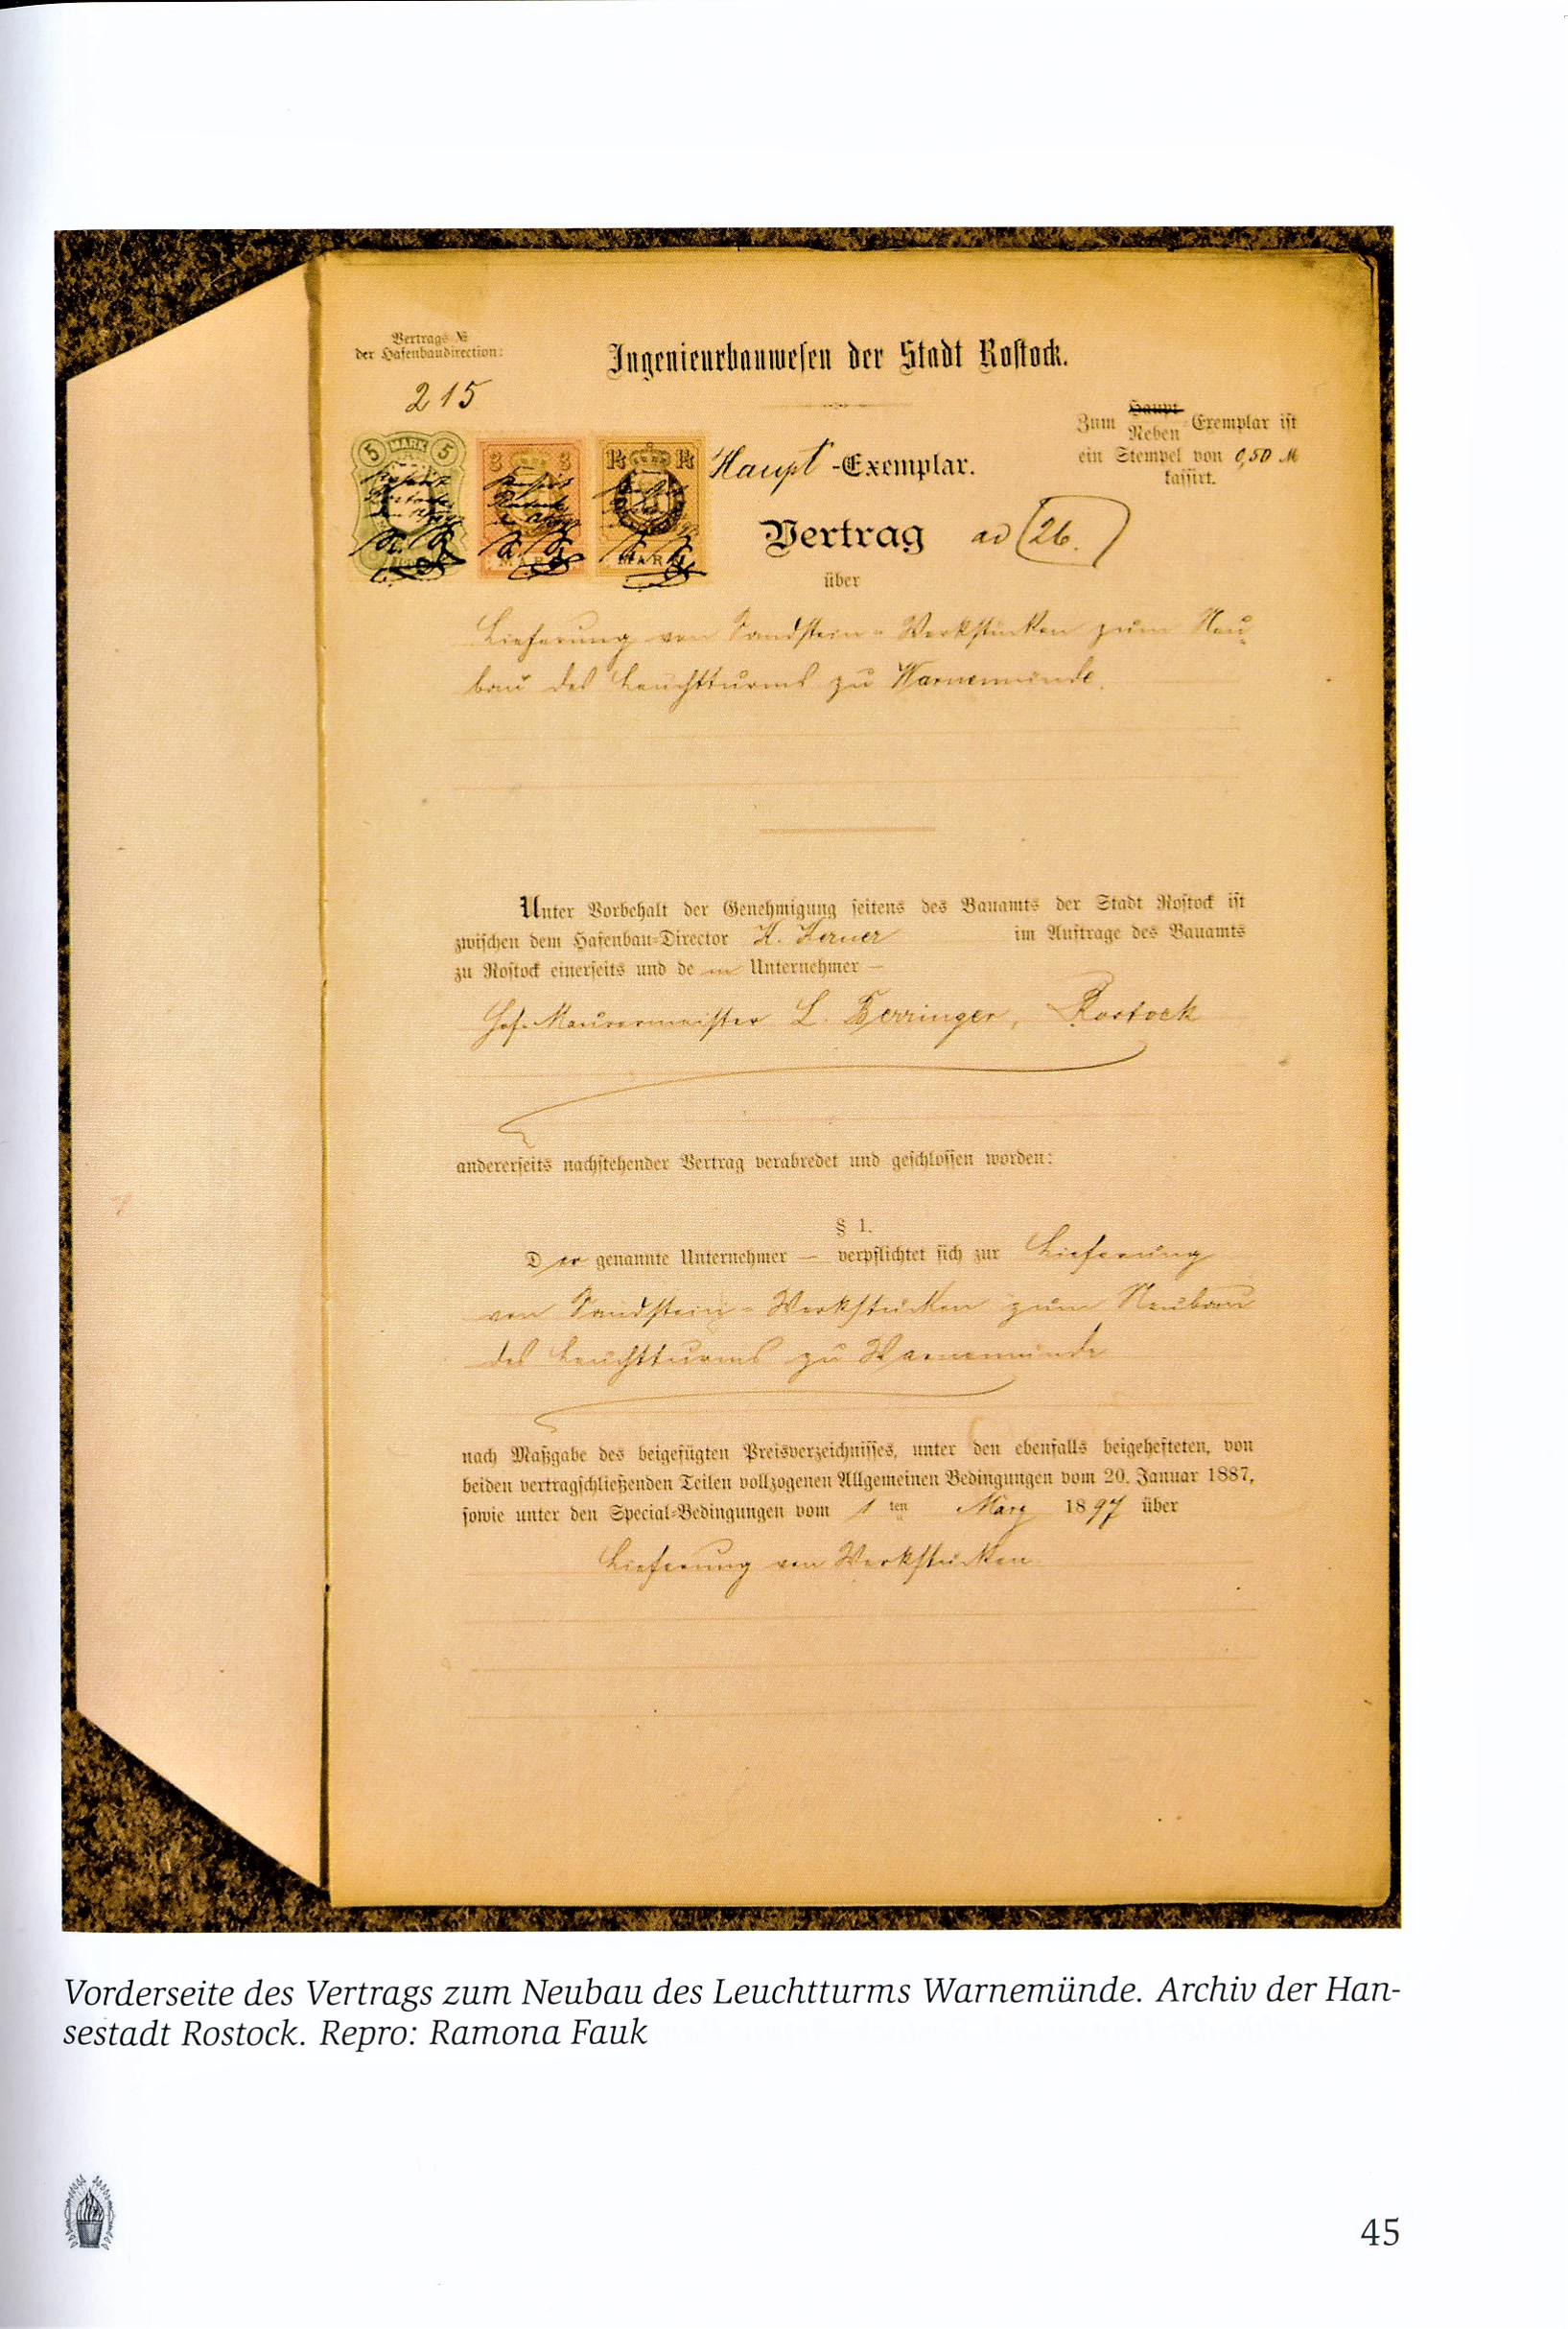 Vertrags №
der Hafenbaudirection:
215
Ingenieurbauwesen der Stadt Rostock.
Zum Haupt Neben-Exemplar ist
ein Stempel von 0,50 M
kassirt.
5 MARK 5
3 3
MARK
1½ 1½
MARK
Haupt-Exemplar.
Vertrag ad 26.
über
Lieferung von Sandstein-Werkstücken zum Neu-
bau des Leuchtturms zu Warnemünde.
Unter Vorbehalt der Genehmigung seitens des Bauamts der Stadt Rostock ist
zwischen dem Hafenbau-Director K. Kerner im Auftrage des Bauamts
zu Rostock einerseits und dem Unternehmer —
Hof-Maurermeister L. Berringer, Rostock
andererseits nachstehender Vertrag verabredet und geschlossen worden:
§ 1.
Der genannte Unternehmer — verpflichtet sich zur Lieferung
von Sandstein-Werkstücken zum Neubau
des Leuchtturms zu Warnemünde
nach Maßgabe des beigefügten Preisverzeichnisses, unter den ebenfalls beigehefteten, von
beiden vertragschließenden Teilen vollzogenen Allgemeinen Bedingungen vom 20. Januar 1887,
sowie unter den Special-Bedingungen vom 1 ten März 1897 über
Lieferung von Werkstücken
Vorderseite des Vertrags zum Neubau des Leuchtturms Warnemünde. Archiv der Han-
sestadt Rostock. Repro: Ramona Fauk
45